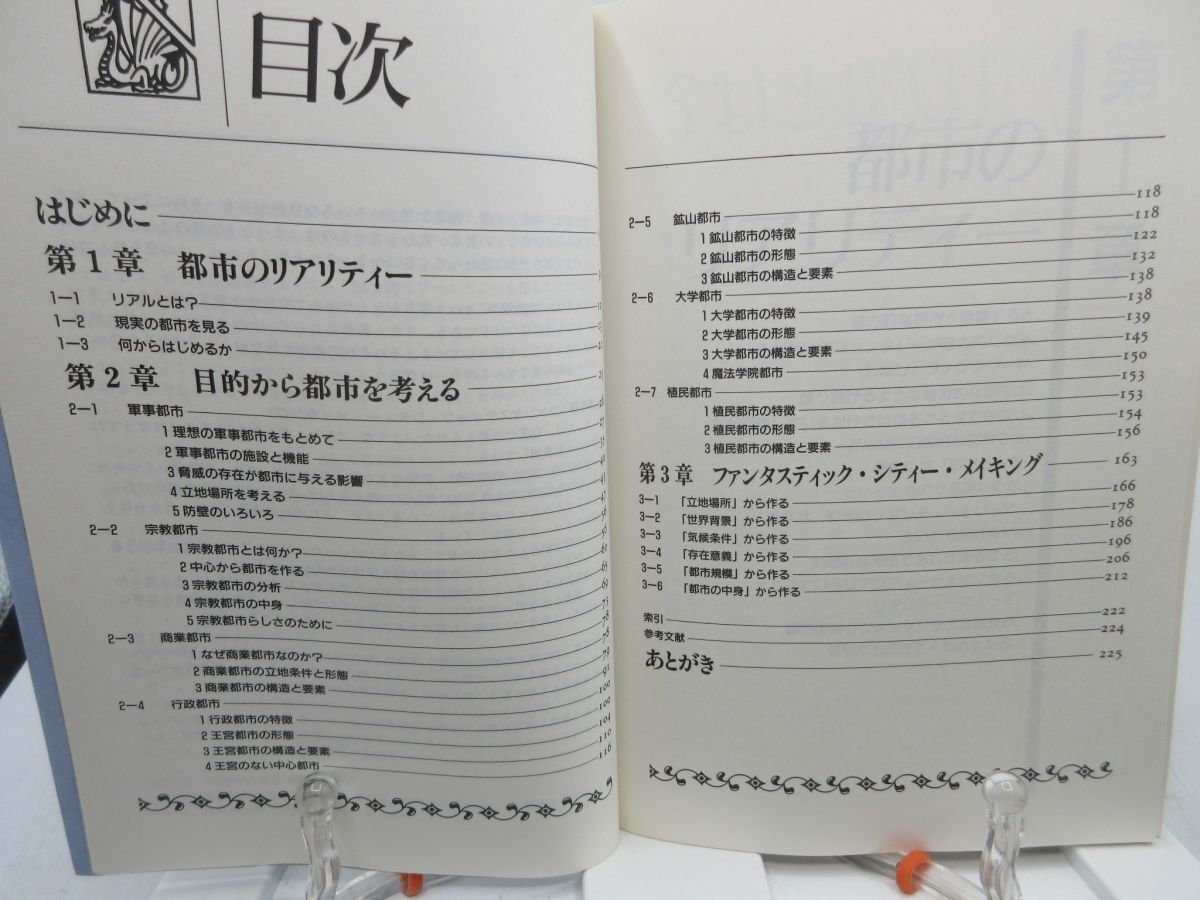 目次
はじめに
第1章 都市のリアリティー
1−1 リアルとは?
1−2 現実の都市を見る
1−3 何からはじめるか
第2章 目的から都市を考える 25
2−1 軍事都市 26
1 理想の軍事都市をもとめて 27
2 軍事都市の施設と機能
3 脅威の存在が都市に与える影響 40
4 立地場所を考える 43
5 防壁のいろいろ 47
2−2 宗教都市 56
1 宗教都市とは何か?
2 中心から都市を作る 60
3 宗教都市の分析 65
4 宗教都市の中身 69
5 宗教都市らしさのために 73
2−3 商業都市 78
1 なぜ商業都市なのか? 78
2 商業都市の立地条件と形態 79
3 商業都市の構造と要素 91
2−4 行政都市 100
1 行政都市の特徴 100
2 王宮都市の形態 104
3 王宮都市の構造と要素 110
4 王宮のない中心都市 116
2−5 鉱山都市 118
1 鉱山都市の特徴 118
2 鉱山都市の形態 122
3 鉱山都市の構造と要素 132
2−6 大学都市 138
1 大学都市の特徴 138
2 大学都市の形態 139
3 大学都市の構造と要素 145
4 魔法学院都市 150
2−7 植民都市 153
1 植民都市の特徴 153
2 植民都市の形態 154
3 植民都市の構造と要素 156
第3章 ファンタスティック・シティー・メイキング 163
3−1 「立地場所」から作る 166
3−2 「世界背景」から作る 178
3−3 「気候条件」から作る 186
3−4 「存在意義」から作る 196
3−5 「都市規模」から作る 206
3−6 「都市の中身」から作る 212
索引 222
参考文献 224
あとがき 225